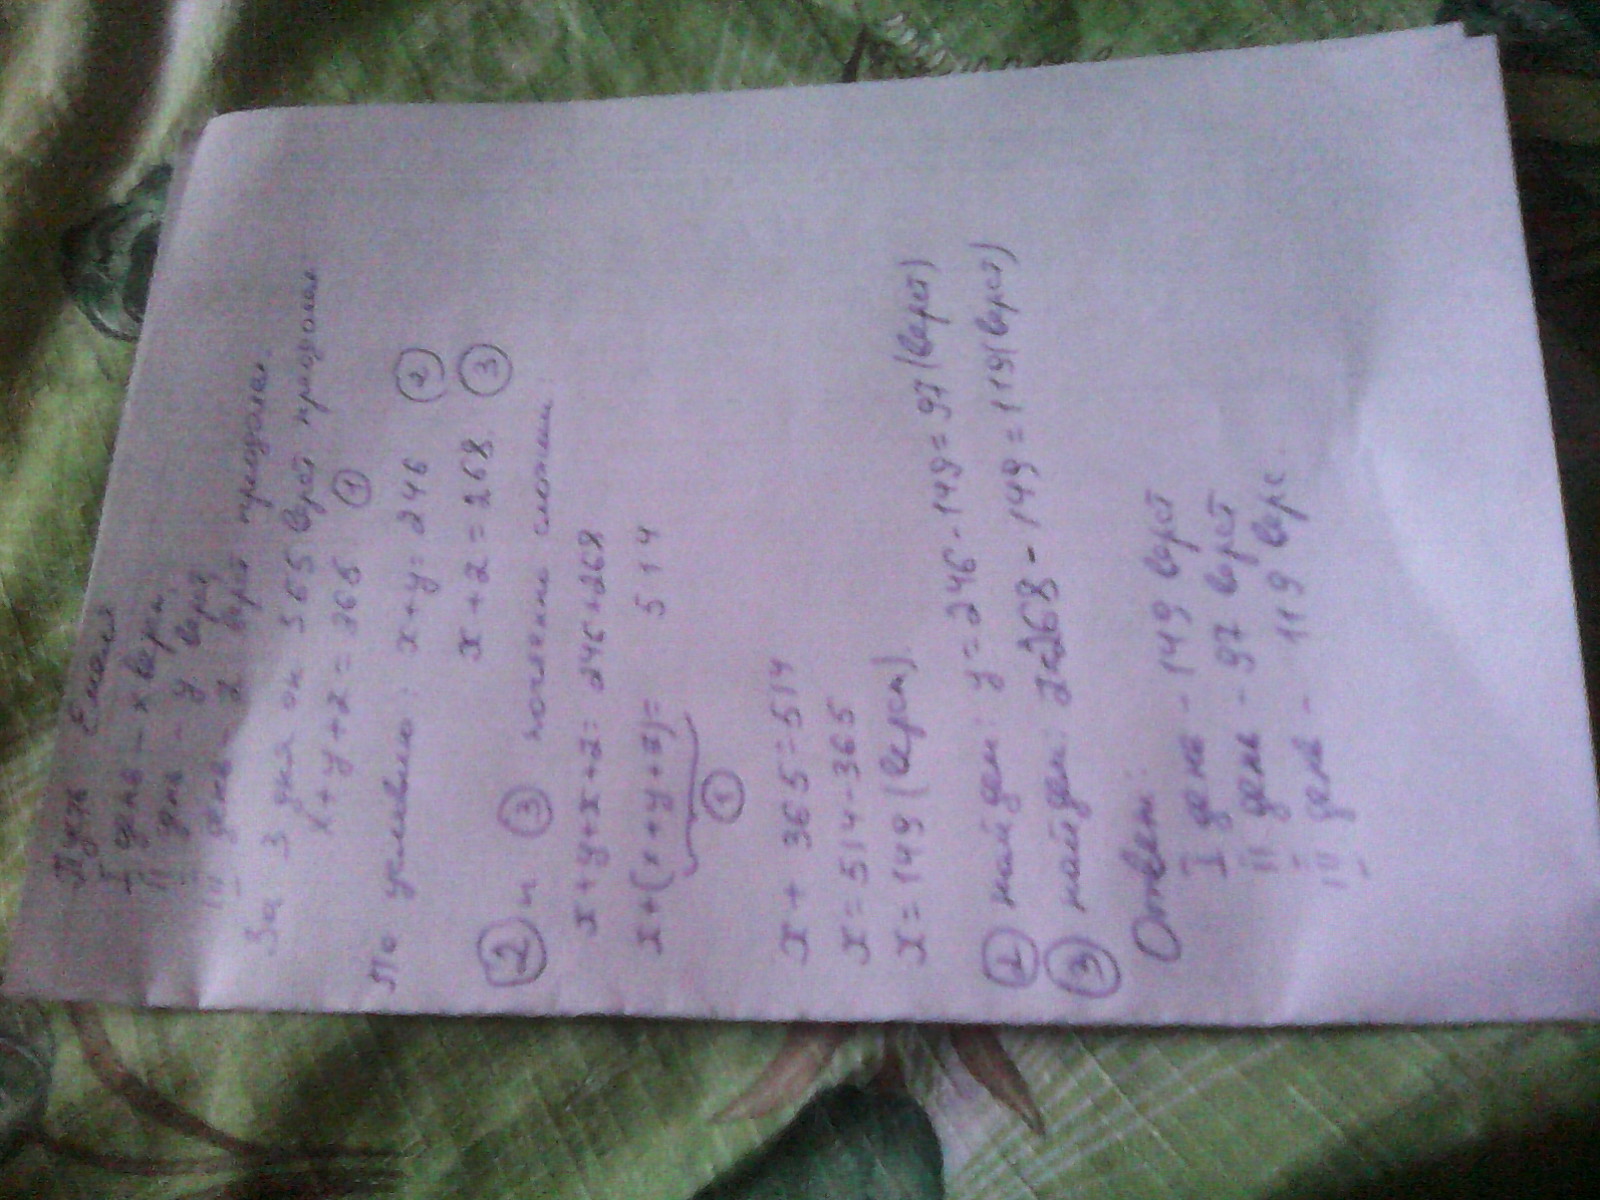 Пусть Емеля
I день - x верст,
II день - y верст
III день - z верст преодолел.
За 3 дня он 365 верст преодолел
x + y + z = 365 ①
По условию: x + y = 246 ②
x + z = 268. ③
② и ③ почленно сложим:
x + y + x + z = 246 + 268
x + (x + y + z) = 514
①
x + 365 = 514
x = 514 - 365
x = 149 (верст).
② найдем: y = 246 - 149 = 97 (верст)
③ найдем: z = 268 - 149 = 119 (верст)
Ответ:
I день - 149 верст
II день - 97 верст
III день - 119 верс.